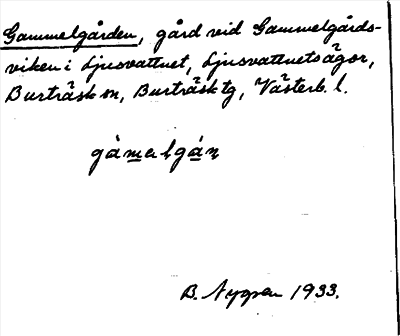 Gammelgården, gård vid Gammelgårds-
viken i Ljusvattnet, Ljusvattnets ägor,
Burträsk sn, Burträsk tg, Västerb. l.
gàmalgán
B. Nygren 1933.